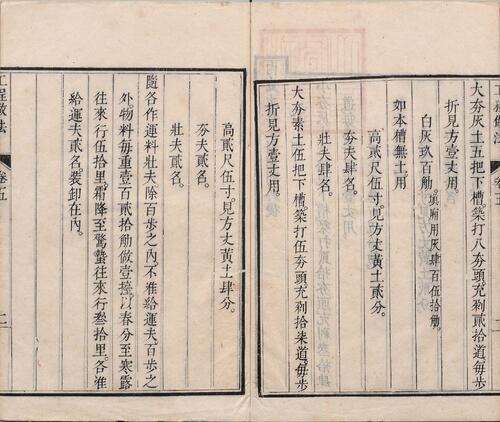 大夯灰土五把下槽築打八夯頭充剁貳拾道每步
折見方壹丈用
白灰玖百觔填廂用灰肆百伍拾觔
如本槽無土用
高貳尺伍寸見方丈黃土貳分
夯夫肆名
壯夫肆名
大夯素土伍把下槽築打伍夯頭充剁拾柒道每步
折見方壹丈用
高貳尺伍寸見方丈黃土肆分
夯夫貳名
壯夫貳名
隨各作運料壯夫除百步之內不准給運夫百步之
外物料每重壹百貳拾觔做壹擔以春分至寒露
往來行伍拾里霜降至驚蟄往來行叁拾里各准
給運夫貳名裝卸在內
工程做法
卷五